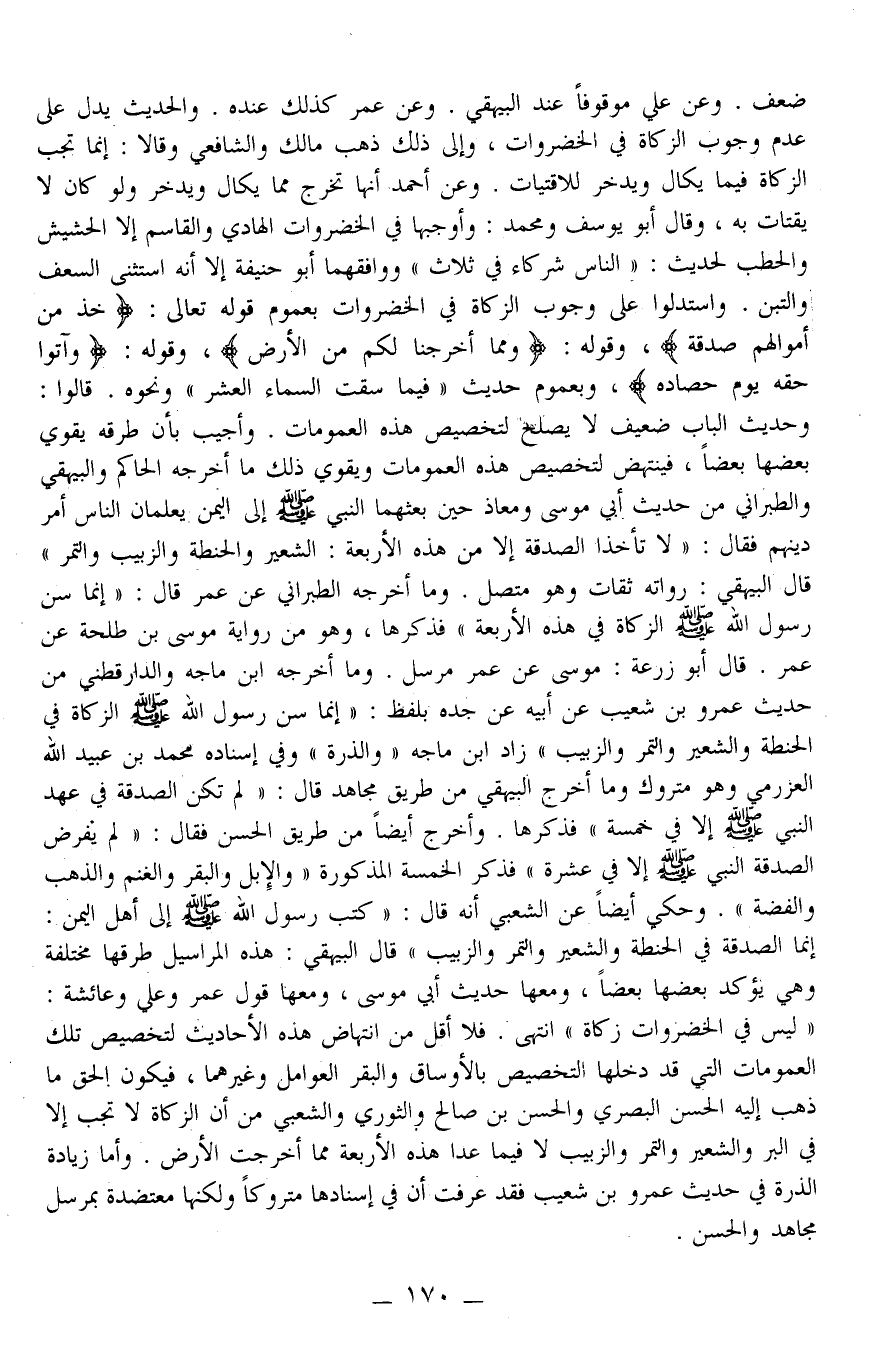 ضعف . وعن علي موقوفاً عند البيهقي . وعن عمر كذلك عنده . والحديث يدل على
عدم وجوب الزكاة في الخضروات ، وإلى ذلك ذهب مالك والشافعي وقالا : إنما تجب
الزكاة فيما يكال ويدخر للاقتيات . وعن أحمد أنها تخرج مما يكال ويدخر ولو كان لا
يقتات به ، وقال أبو يوسف ومحمد : وأوجبها في الخضروات الهادي والقاسم إلا الحشيش
والحطب لحديث : « الناس شركاء في ثلاث » ووافقهما أبو حنيفة إلا أنه استثنى السعف
والتبن . واستدلوا على وجوب الزكاة في الخضروات بعموم قوله تعالى : ﴿ خذ من
أموالهم صدقة ﴾ ، وقوله : ﴿ ومما أخرجنا لكم من الأرض ﴾ ، وقوله : ﴿ وآتوا
حقه يوم حصاده ﴾ ، وبعموم حديث « فيما سقت السماء العشر » ونحوه . قالوا :
وحديث الباب ضعيف لا يصلح لتخصيص هذه العمومات . وأجيب بأن طرقه يقوي
بعضها بعضاً ، فينتهض لتخصيص هذه العمومات ويقوي ذلك ما أخرجه الحاكم والبيهقي
والطبراني من حديث أبي موسى ومعاذ حين بعثهما النبي ﷺ إلى اليمن يعلمان الناس أمر
دينهم فقال : « لا تأخذا الصدقة إلا من هذه الأربعة : الشعير والحنطة والزبيب والتمر »
قال البيهقي : رواته ثقات وهو متصل . وما أخرجه الطبراني عن عمر قال : « إنما سن
رسول الله ﷺ الزكاة في هذه الأربعة » فذكرها ، وهو من رواية موسى بن طلحة عن
عمر . قال أبو زرعة : موسى عن عمر مرسل . وما أخرجه ابن ماجه والدارقطني من
حديث عمرو بن شعيب عن أبيه عن جده بلفظ : « إنما سن رسول الله ﷺ الزكاة في
الحنطة والشعير والتمر والزبيب » زاد ابن ماجه « والذرة » وفي إسناده محمد بن عبيد الله
العزرمي وهو متروك وما أخرج البيهقي من طريق مجاهد قال : « لم تكن الصدقة في عهد
النبي ﷺ إلا في خمسة » فذكرها . وأخرج أيضاً من طريق الحسن فقال : « لم يُفرض
الصدقة النبي ﷺ إلا في عشرة » فذكر الخمسة المذكورة « والإبل والبقر والغنم والذهب
والفضة » . وحكي أيضاً عن الشعبي أنه قال : « كتب رسول الله ﷺ إلى أهل اليمن :
إنما الصدقة في الحنطة والشعير والتمر والزبيب » قال البيهقي : هذه المراسيل طرقها مختلفة
وهي يُؤكد بعضها بعضاً ، ومعها حديث أبي موسى ، ومعها قول عمر وعلي وعائشة :
« ليس في الخضروات زكاة » انتهى . فلا أقل من انتهاض هذه الأحاديث لتخصيص تلك
العمومات التي قد دخلها التخصيص بالأوساق والبقر العوامل وغيرهما ، فيكون الحق ما
ذهب إليه الحسن البصري والحسن بن صالح والثوري والشعبي من أن الزكاة لا تجب إلا
في البر والشعير والتمر والزبيب لا فيما عدا هذه الأربعة مما أخرجت الأرض . وأما زيادة
الذرة في حديث عمرو بن شعيب فقد عرفت أن في إسنادها متروكاً ولكنها معتضدة بمرسل
مجاهد والحسن .
_ ١٧٠ _